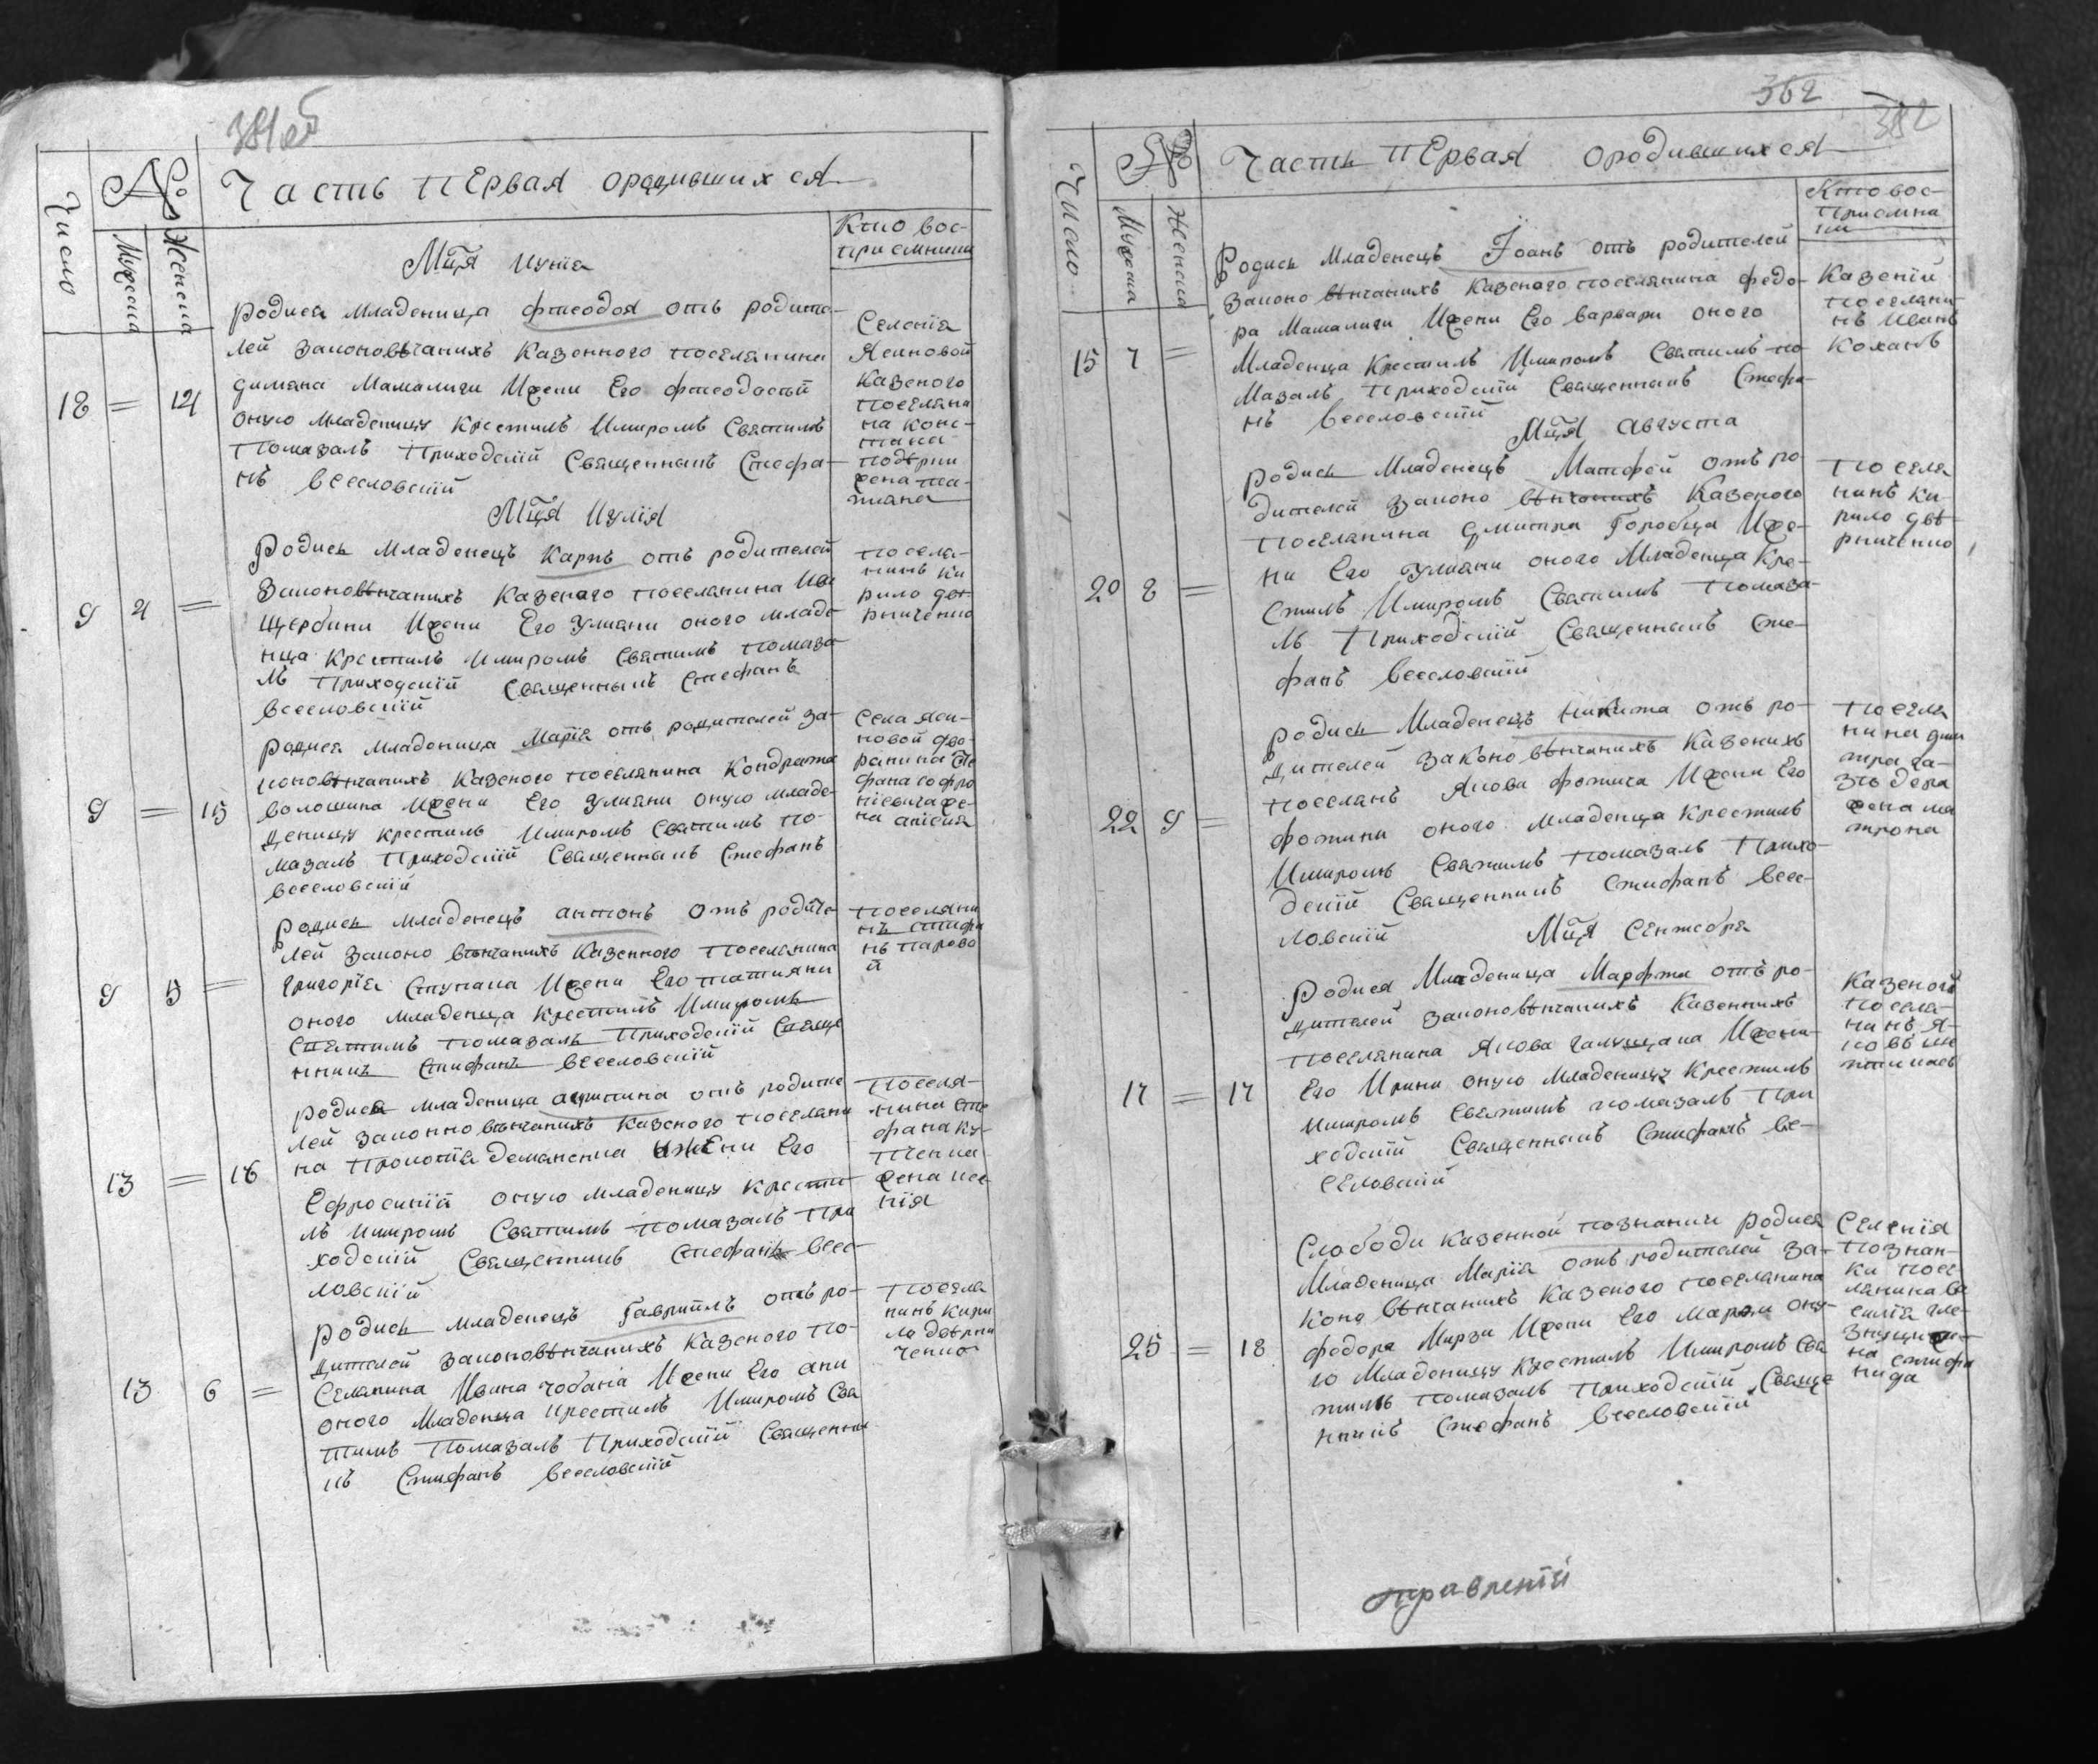 381об
№
Часть первая ородившихся
Число
Мужеска
Женска
Кто вос-
приемники
Мца Иуния
Родися младеница Фтеодоя отъ родите-
лей законовѣчанихъ казенного поселянина
димяна Мамалиги Ижени Его Фтеодосий
18 = 14
оную младеницу крестилъ Имиромъ Святимъ
помазалъ приходский Священникъ Стефа-
нъ Веселовский
Селения
Ясиновой
Казеного
поселяни
на Конс-
подѣрни
жена та-
тияна
Мца Иулия
Родись Младенецъ Карпъ отъ родителей
Законовѣнчанихъ Казенаго поселянина Ива
9 4 =
Щербини Ижени Его Улияни оного младе
нца крестилъ Имиромъ Святимъ помаза
лъ приходский Священникъ Стефанъ
Веселовский
посела-
нинъ Ки
рило двѣ
рниченко
Родися младеница Мария отъ родителей за-
коновѣнчанихъ Казеного поселянина Кондрата
9 = 15
волошина Ижени Его Улияни оную младе-
деницу крестилъ Имиромъ Святимъ по-
мазалъ приходский Священникъ Стефанъ
Веселовский
Села Яси-
новой дво-
ранина Сте
фана софро
ниевича же-
на
Родись младенецъ антонъ отъ родите
лей законо вѣнчанихъ Казенного поселянина
9 5 =
григория Ступака Ижени Его татияни
оного младенца крестилъ Имиромъ
Святимъ помазалъ приходский Свяще
нникъ Стифанъ Веселовский
поселяни
нъ Стифа
нъ парово
й
Родися младеница агрипина отъ родите
лей законно вѣнчанихъ казеного поселяни
13 = 16
на Прокопия деманенка Ижени Его
Ефросиний оную младеницу крести
лъ Имиромъ Святимъ помазалъ при
ходский Священникъ Стефанъ Весе-
ловский
поселя-
нина Сте
фана ку-
жена ксе
ния
Родись младенецъ Гавриилъ отъ ро-
дителей законовѣнчанихъ казеного по-
13 6 =
селянина Ивана Чобания Ижени Его ани
оного младенца крестилъ Имиромъ Свя
тимъ помазалъ приходский Священни
къ Стифанъ Веселовский
посела
нинъ кири
ла двѣрни
ченко
362
382
№
Часть первая ородившихся
Число
Мужеска
Женска
Кто вос-
приемни
ки
Родись Младенецъ Іоанъ отъ родителей
законо вѣнчанихъ казеного поселянина федо-
ра Мамалиги Ижени Его варвари оного
15 7 =
Младенца крестилъ Имиромъ Святимъ по-
мазалъ приходский Священникъ Стефа-
нъ Веселовский
Казений
поселяни-
нъ Иванъ
Коханъ
Мца Августа
Родись Младенецъ Матфей отъ ро-
дителей законо вѣнчанихъ Казеного
поселянина дмитра Горобца Иже-
20 8 =
ни Его Улияни оного Младенца кре-
стилъ Имиромъ Святимъ помаза-
лъ приходский Священникъ Сте-
фанъ Веселовский
поселя
нинъ ки-
рило двѣ-
рниченко
Родись Младенецъ Никита отъ ро-
дителей законо вѣнчанихъ Казенихъ
поселянъ Якова фомича Ижени Его
22 9 =
фотини оного младенца крестилъ
Имиромъ Святимъ помазалъ прихо-
дский Священникъ Стифанъ Весе-
ловский
поселя
нина дми
тра га-
зъдера
жена ма
трона
Мца Сентебра
Родися Младеница Марфта отъ ро-
дителей законовѣнчанихъ Казеннихъ
поселянина Якова Ижени-
17 = 17
Его Ирини оную Младеницу крестилъ
Имиромъ Святимъ помазалъ при
ходский Священникъ Стифанъ Ве-
селовский
Казеной
посела-
нинъ Я-
Слободи Казенной познанки родися
Младеница Мария отъ родителей за-
коно вѣнчанихъ Казеного поселянина
25 = 18
федора Мирзи Ижени Его Марфи ону-
ю Младеницу крестилъ Имиромъ Свя
тимъ помазалъ приходский Свяще
нникъ Стефанъ Веселовский
Селения
познан-
ки посе-
лянина ва
силия гле-
на стифа
нида
правлений